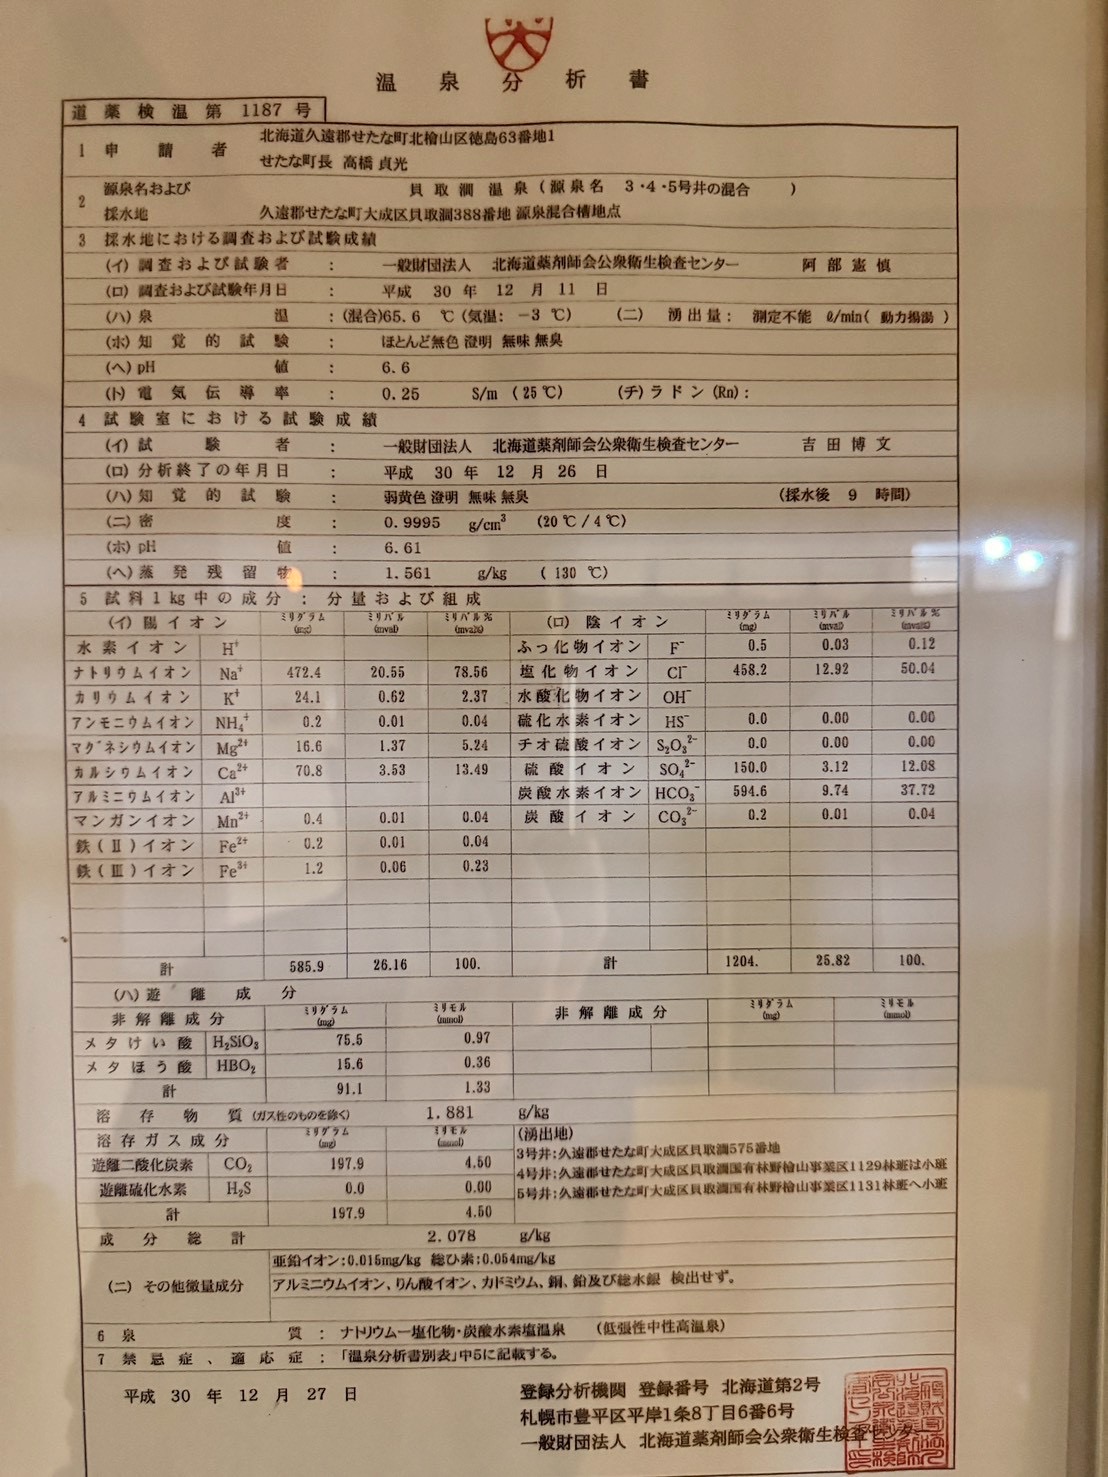 大
温泉分析書
道薬検温第 1187 号
1 申請者 北海道久遠郡せたな町北檜山区徳島63番地1
せたな町長 高橋 貞光
2 源泉名および 貝取澗温泉(源泉名 3・4・5号井の混合 )
採水地 久遠郡せたな町大成区貝取澗388番地 源泉混合槽地点
3 採水地における調査および試験成績
(イ)調査および試験者 : 一般財団法人 北海道薬剤師会公衆衛生検査センター 阿部憲慎
(ロ)調査および試験年月日 : 平成 30 年 12 月 11 日
(ハ)泉温 :(混合)65.6 ℃(気温: -3 ℃) (二) 湧出量: 測定不能 ℓ/min( 動力揚湯 )
(ホ)知覚的試験 : ほとんど無色 澄明 無味 無臭
(ヘ)pH値 : 6.6
(ト)電気伝導率 : 0.25 S/m (25℃) (チ)ラドン(Rn):
4 試験室における試験成績
(イ)試験者 : 一般財団法人 北海道薬剤師会公衆衛生検査センター 吉田博文
(ロ)分析終了の年月日 : 平成 30 年 12 月 26 日
(ハ)知覚的試験 : 弱黄色 澄明 無味 無臭 (採水後 9 時間)
(二)密度 : 0.9995 g/cm³ (20℃/4℃)
(ホ)pH値 : 6.61
(ヘ)蒸発残留物 : 1.561 g/kg ( 130 ℃)
5 試料1kg中の成分 : 分量および組成
(イ)陽イオン ミリグラム(mg) ミリバル(mval) ミリバル%(mval%) (ロ)陰イオン ミリグラム(mg) ミリバル(mval) ミリバル%(mval%)
水素イオン H⁺ ふっ化物イオン F⁻ 0.5 0.03 0.12
ナトリウムイオン Na⁺ 472.4 20.55 78.56 塩化物イオン Cl⁻ 458.2 12.92 50.04
カリウムイオン K⁺ 24.1 0.62 2.37 水酸化物イオン OH⁻
アンモニウムイオン NH₄⁺ 0.2 0.01 0.04 硫化水素イオン HS⁻ 0.0 0.00 0.00
マグネシウムイオン Mg²⁺ 16.6 1.37 5.24 チオ硫酸イオン S₂O₃²⁻ 0.0 0.00 0.00
カルシウムイオン Ca²⁺ 70.8 3.53 13.49 硫酸イオン SO₄²⁻ 150.0 3.12 12.08
アルミニウムイオン Al³⁺ 炭酸水素イオン HCO₃⁻ 594.6 9.74 37.72
マンガンイオン Mn²⁺ 0.4 0.01 0.04 炭酸イオン CO₃²⁻ 0.2 0.01 0.04
鉄(Ⅱ)イオン Fe²⁺ 0.2 0.01 0.04
鉄(Ⅲ)イオン Fe³⁺ 1.2 0.06 0.23
計 585.9 26.16 100. 計 1204. 25.82 100.
(ハ)遊離成分
非解離成分 ミリグラム(mg) ミリモル(mmol) 非解離成分 ミリグラム(mg) ミリモル(mmol)
メタけい酸 H₂SiO₃ 75.5 0.97
メタほう酸 HBO₂ 15.6 0.36
計 91.1 1.33
溶存物質(ガス性のものを除く) 1.881 g/kg
溶存ガス成分 ミリグラム(mg) ミリモル(mmol) (湧出地)
3号井:久遠郡せたな町大成区貝取澗575番地
遊離二酸化炭素 CO₂ 197.9 4.50 4号井:久遠郡せたな町大成区貝取澗国有林野檜山事業区1129林班は小班
遊離硫化水素 H₂S 0.0 0.00 5号井:久遠郡せたな町大成区貝取澗国有林野檜山事業区1131林班へ小班
計 197.9 4.50
成分総計 2.078 g/kg
亜鉛イオン:0.015mg/kg 総ひ素:0.054mg/kg
(二) その他微量成分 アルミニウムイオン、りん酸イオン、カドミウム、銅、鉛及び総水銀 検出せず。
6 泉質 : ナトリウムー塩化物・炭酸水素塩温泉 (低張性中性高温泉)
7 禁忌症、適応症 : 「温泉分析書別表」中5に記載する。
平成 30 年 12 月 27 日
登録分析機関 登録番号 北海道第2号
札幌市豊平区平岸1条8丁目6番6号
一般財団法人 北海道薬剤師会公衆衛生検査センター